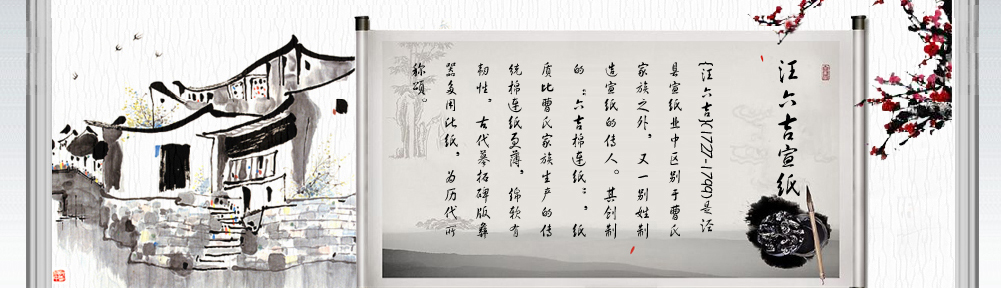 汪六吉宣纸
{汪六吉}(1727-1799)是泾
县宣纸业中区别于曹氏
家族之外，又一别姓制
造宣纸的传人。其创制
的："六吉棉连纸"，纸
质比曹氏家族生产的传
统棉连纸更薄，绵软有
韧性，古代摹拓碑版彝
器多用此纸，为历代所
称颂。